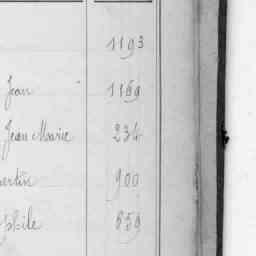 1193
Jean 1169
Jean Marie 234
ertin 900
ophile 859